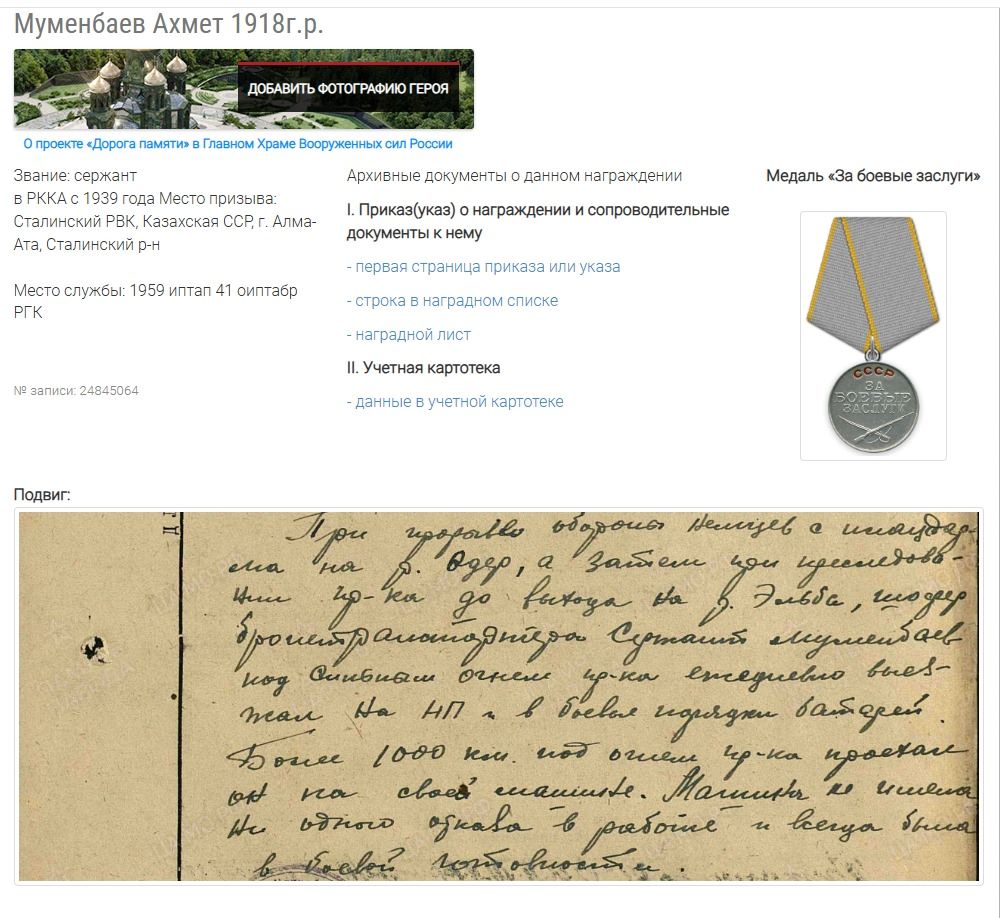 Муменбаев Ахмет 1918г.р.
ДОБАВИТЬ ФОТОГРАФИЮ ГЕРОЯ
О проекте «Дорога памяти» в Главном Храме Вооруженных сил России
Звание: сержант
в РККА с 1939 года Место призыва:
Сталинский РВК, Казахская ССР, г. Алма-
Ата, Сталинский р-н
Место службы: 1959 иптап 41 оиптабр
РГК
№ записи: 24845064
Архивные документы о данном награждении
I. Приказ(указ) о награждении и сопроводительные
документы к нему
- первая страница приказа или указа
- строка в наградном списке
- наградной лист
II. Учетная картотека
- данные в учетной картотеке
Медаль «За боевые заслуги»
СССР
ЗА
БОЕВЫЕ
ЗАСЛУГИ
Подвиг:
При прорыве обороны немцев с плацдар-
ма на р. Одер, а затем при преследова-
нии пр-ка до выхода на р. Эльба, шофер
бронетранспортера Сержант Муменбаев
под сильным огнем пр-ка ежедневно выез-
жал на НП и в боевые порядки батарей.
Более 1000 км. под огнем пр-ка проехал
он на своей машине. Машина не имела
ни одного отказа в работе и всегда была
в боевой готовности.